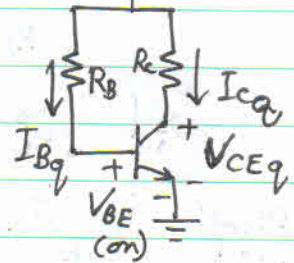 R_B R_C I_CQ
I_Bq + + V_CEq
V_BE - -
(on)